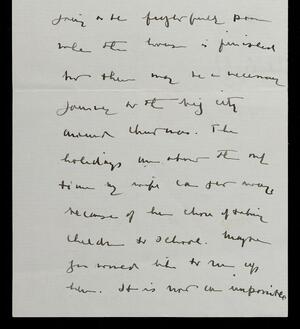 going to be frightfully poor
while the house is finished
but there may be a necessary
journey to the big city
around Christmas. The
holidays are about the only
time my wife can get away
because of her chore of taking
children to school. Maybe
you would like to run up
here. It is now an impossible